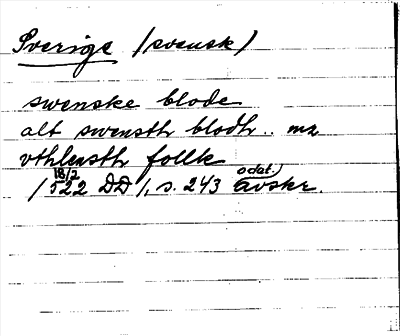 Sverige (svensk)
swenske blode
alt swensth blodh.. mz
vthlensth follk
18/2 odat.)
1522 DD 1, s. 243 avskr.